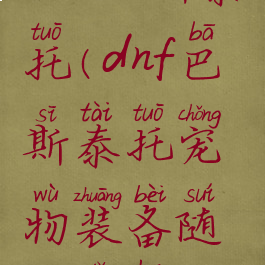 tuō bā
托(dnf巴
sī tài tuō chǒng
斯泰托宠
wù zhuāng bèi suí
物装备随